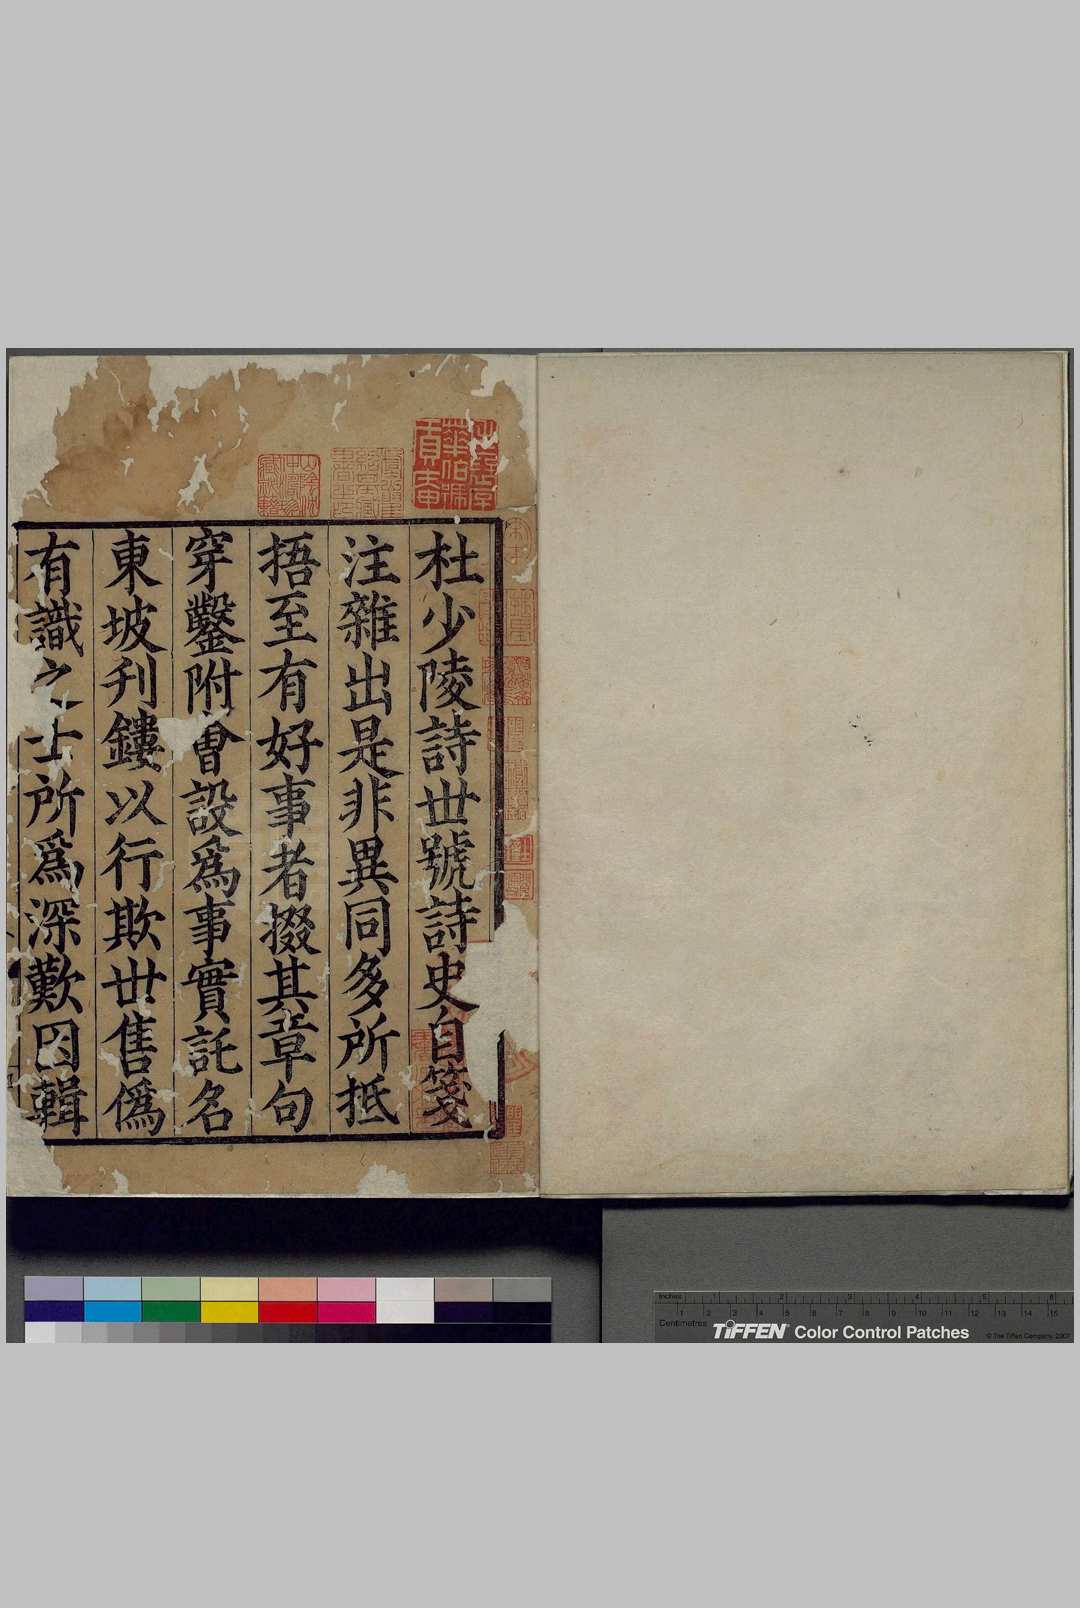 杜少陵詩世號詩史自箋
注雜出是非異同多所抵
捂至有好事者掇其章句
穿鑿附會設爲事實託名
東坡刋鏤以行欺世售僞
有識之士所爲深歎因輯
Inches 1 2 3 4 5 6
Centimetres 1 2 3 4 5 6 7 8 9 10 11 12 13 14 15
TIFFEN Color Control Patches
© The Tiffen Company, 2007